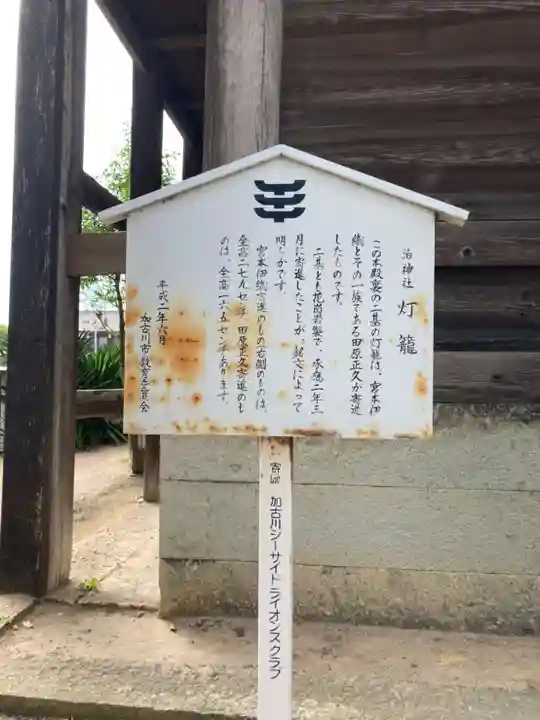 泊神社 灯籠
この本殿裏の二基の灯籠は、宮本伊
織とその一族である田原正久が寄進
したものです。
二基とも花崗岩製で、承応二年三
月に寄進したことが、銘文によって
明らかです。
宮本伊織寄進のもの右側のものは、
全高二七八センチ、田原正久寄進のも
のは、全高二一八センチあります。
平成二年六月
加古川市教育委員会
寄贈 加古川シーサイドライオンズクラブ